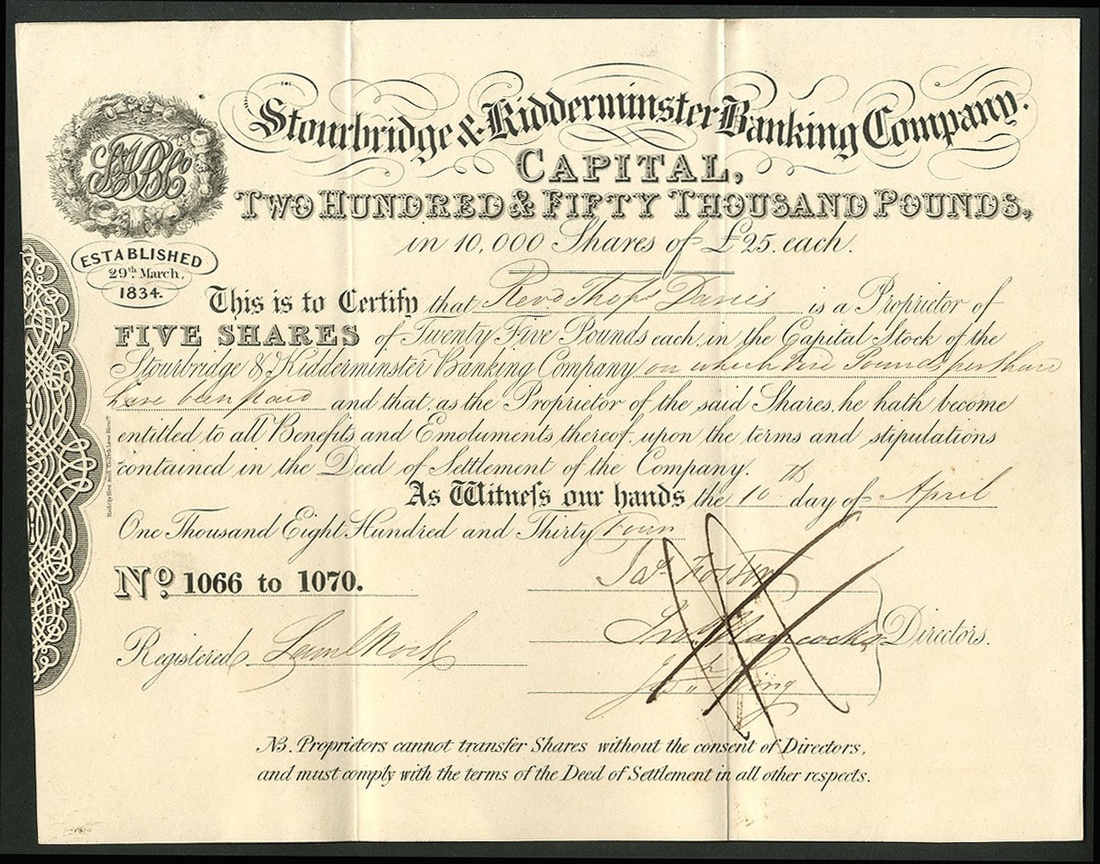 Stourbridge & Kidderminster Banking Company.
CAPITAL,
TWO HUNDRED & FIFTY THOUSAND POUNDS,
in 10,000 Shares of £25. each.
S&KBCo
ESTABLISHED
29th March,
1834.
This is to Certify that Revd Thos Davis is a Proprietor of
FIVE SHARES of Twenty Five Pounds each, in the Capital Stock of the
Stourbridge & Kidderminster Banking Company on which Five Pounds per share
have been paid and that, as the Proprietor of the said Shares, he hath become
entitled to all Benefits and Emoluments thereof, upon the terms and stipulations
contained in the Deed of Settlement of the Company.
As Witneſs our hands the 10th day of April
One Thousand Eight Hundred and Thirty Four
No 1066 to 1070.
Jas Foster
Jno Hancocks Directors.
Registered.
King
NB. Proprietors cannot transfer Shares without the consent of Directors,
and must comply with the terms of the Deed of Settlement in all other respects.